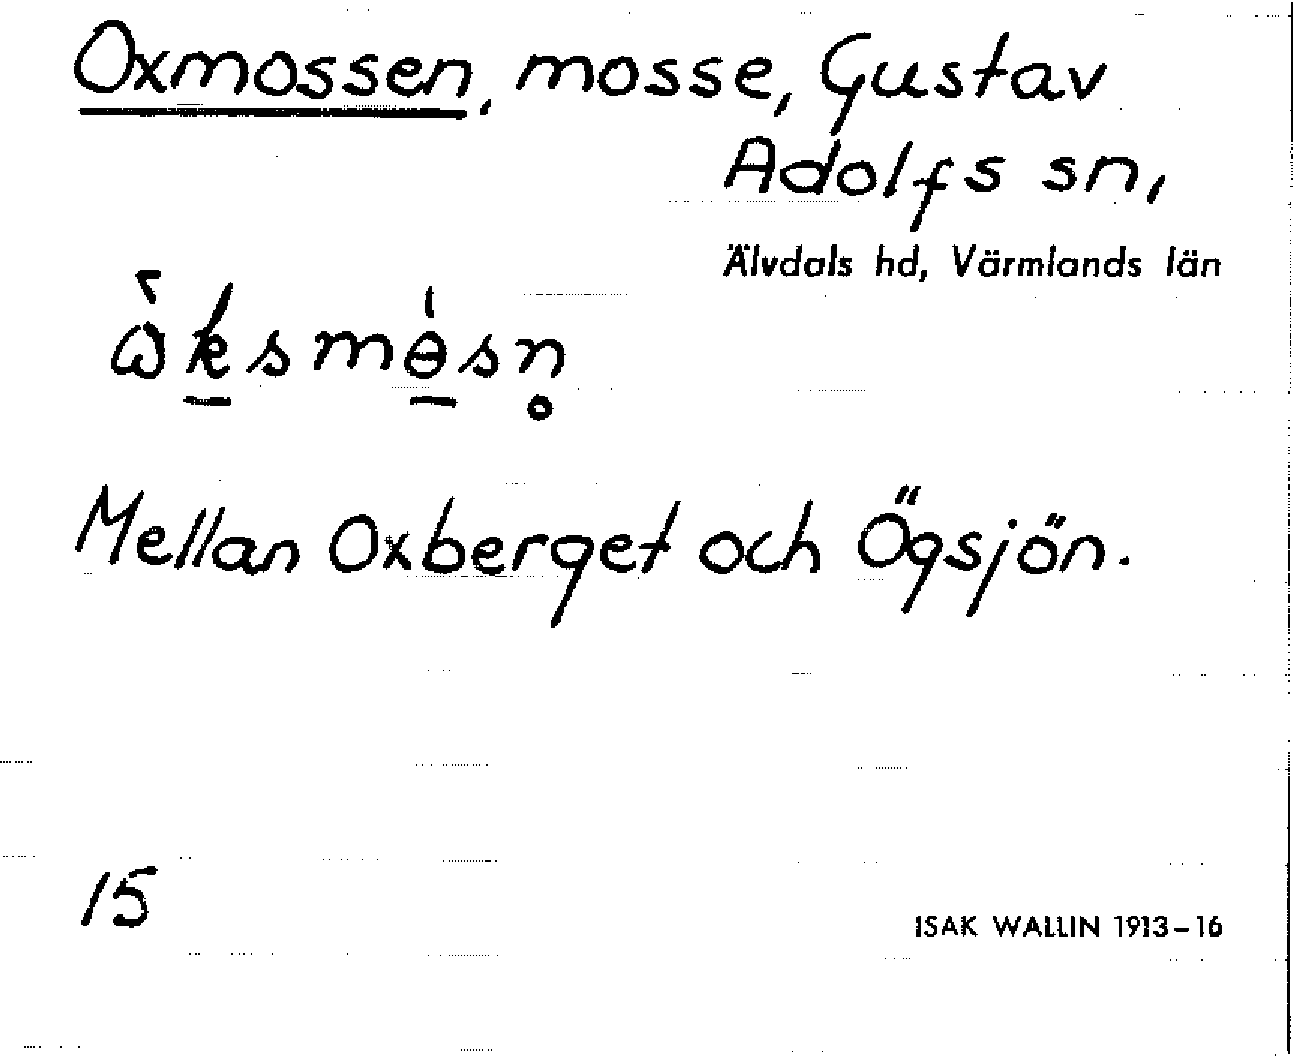 Oxmossen, mosse, Gustav
Adolfs sn,
Älvdals hd, Värmlands län
ὼk̲smɵ̲́sn̥
Mellan Oxberget och Ögsjön.
15
ISAK WALLIN 1913–16